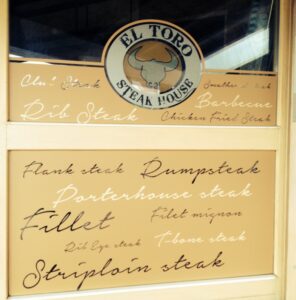 EL TORO
STEAK HOUSE
Club Steak
Smother Steak
Rib Steak
Barbecue
Chicken Fried Steak
Flank steak
Rumpsteak
Porterhouse steak
Fillet
Filet mignon
Rib Eye steak
T-bone steak
Striploin steak